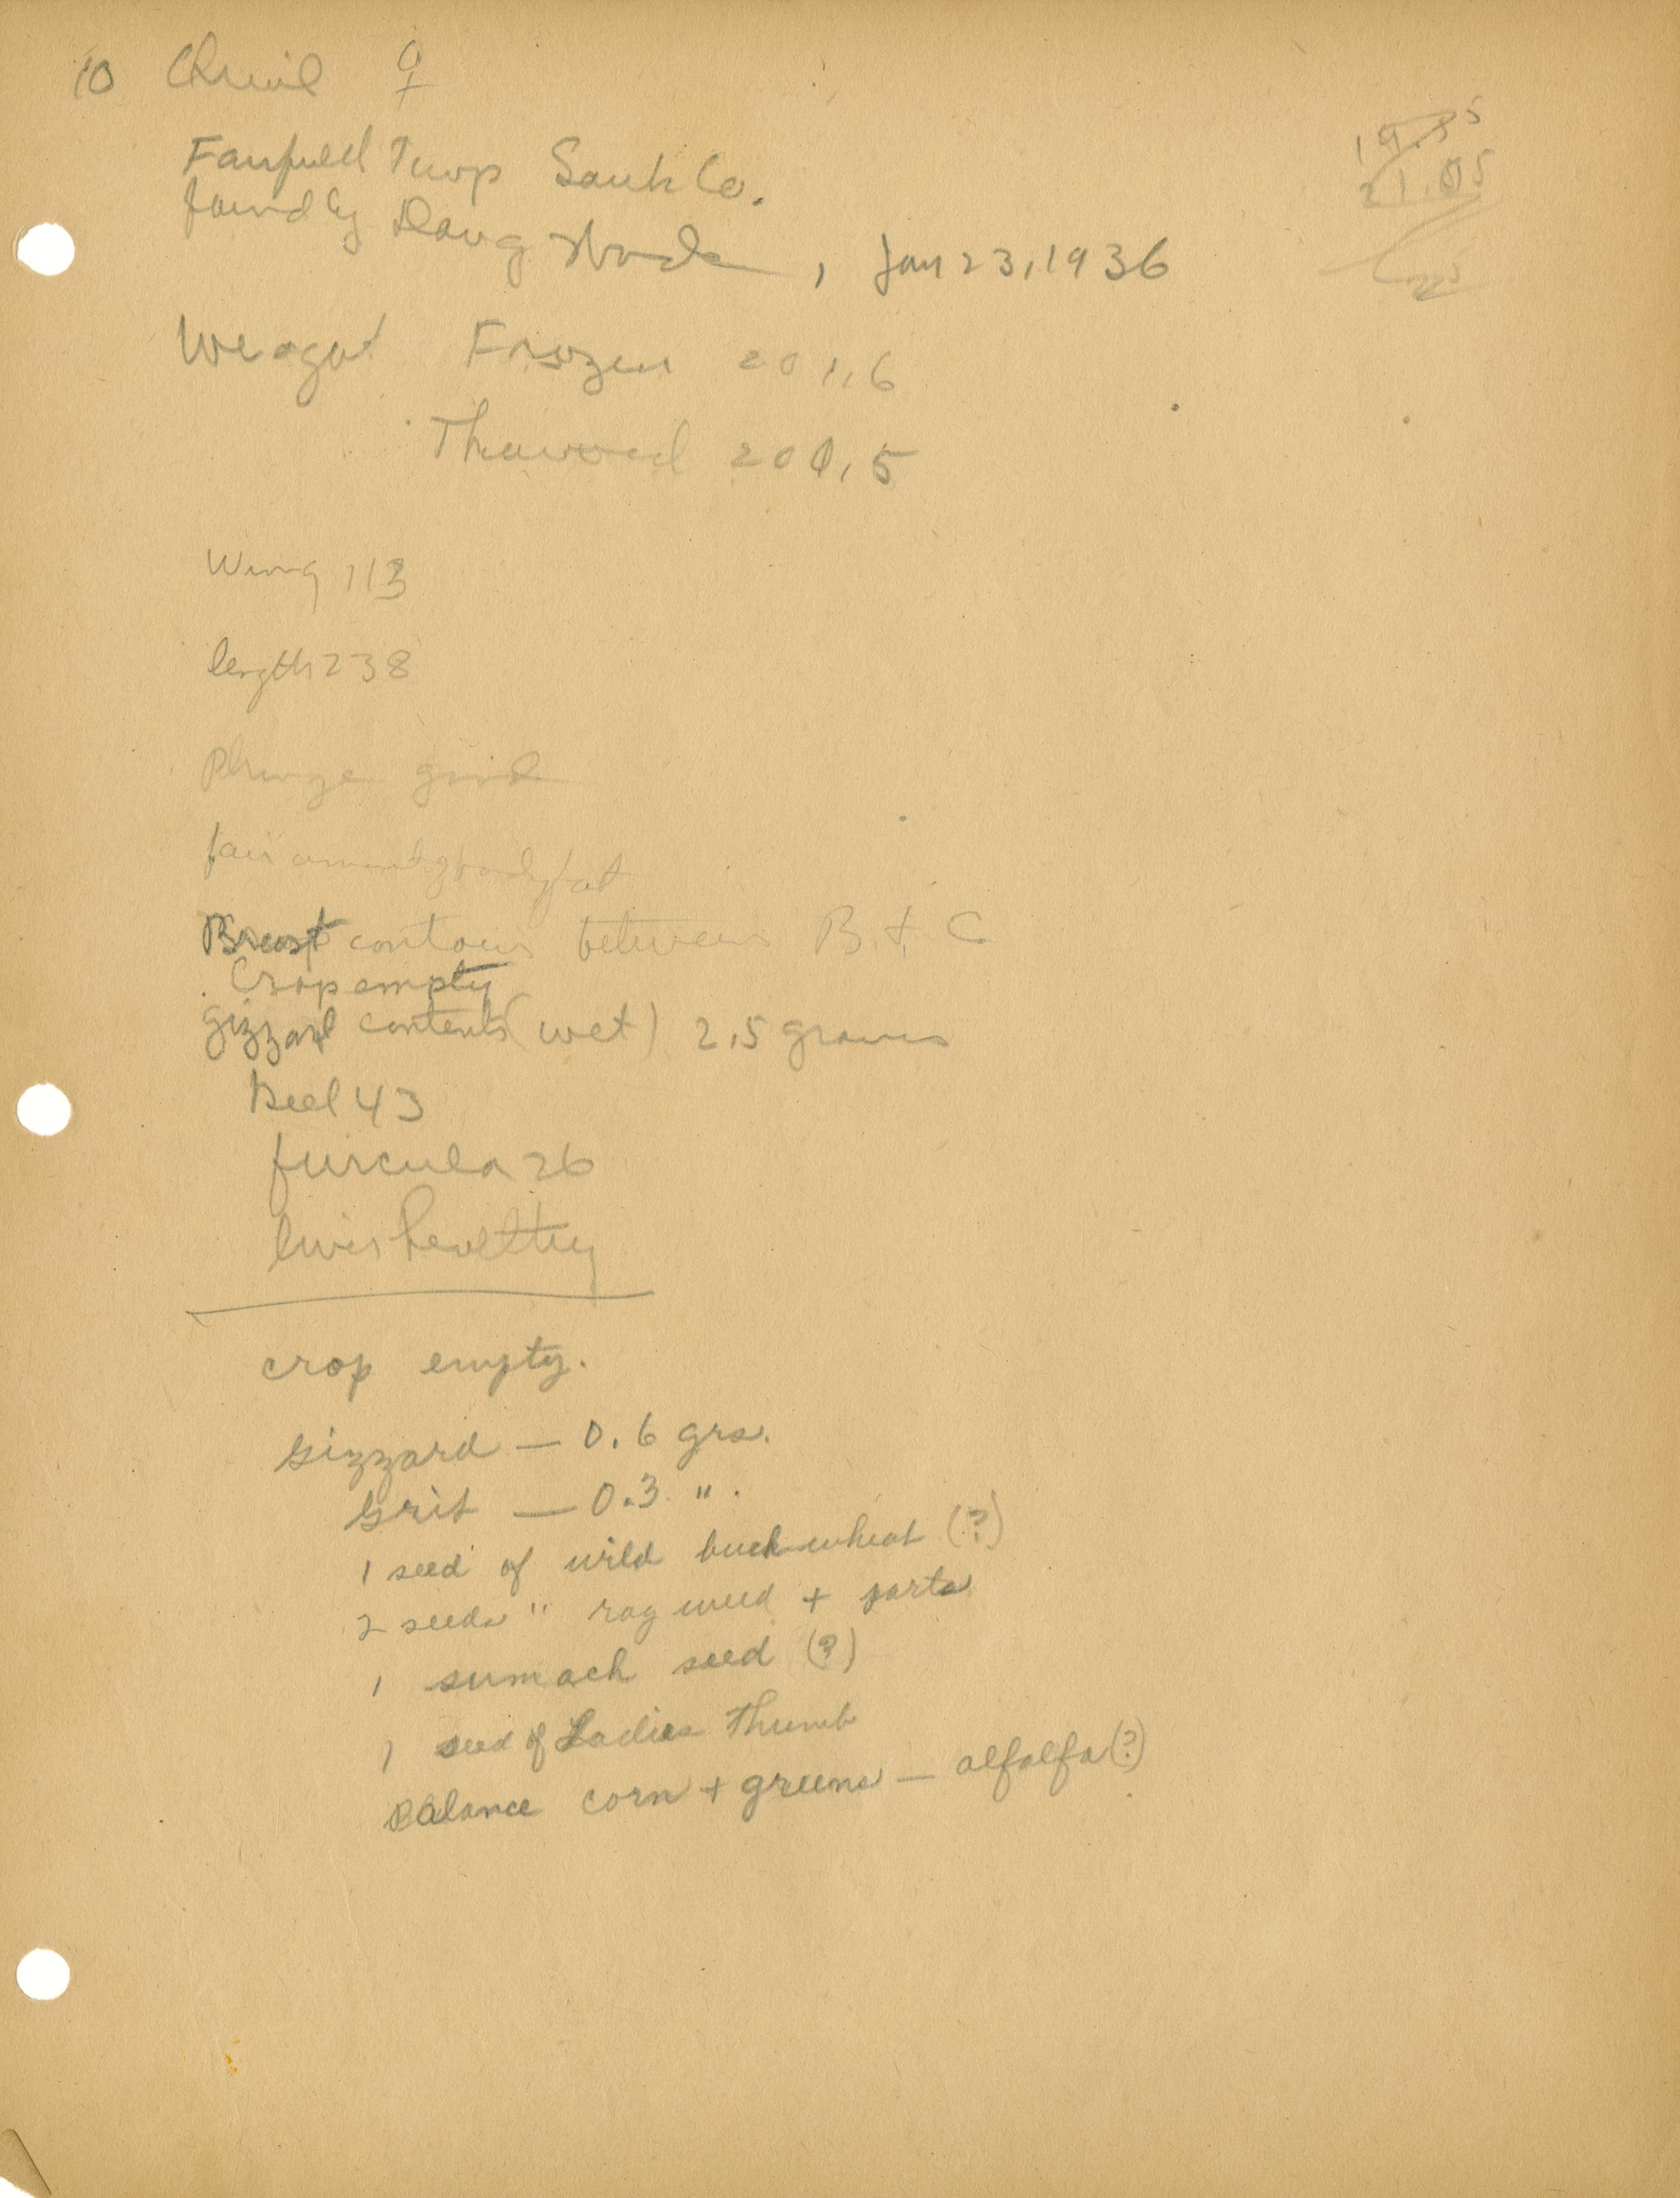 10 Quail ♀
19.85
21.05
Fairfield Twp Sauk Co.
found by Doug Wade, Jan 23, 1936
Weight Frozen 201.6
Thawed 200.5
Wing 113
length 238
Plumage good
fair amount of body fat
Breast contour between B. & C
Crop empty
Gizzard contents (wet) 2.5 grams
Keel 43
furcula 26
liver healthy
crop empty.
Gizzard — 0.6 grs.
Grit — 0.3 ".
1 seed of wild buckwheat (?)
2 seeds " rag weed + parts
1 sumach seed (?)
1 seed of Ladies Thumb
Balance corn + greens — alfalfa (?)